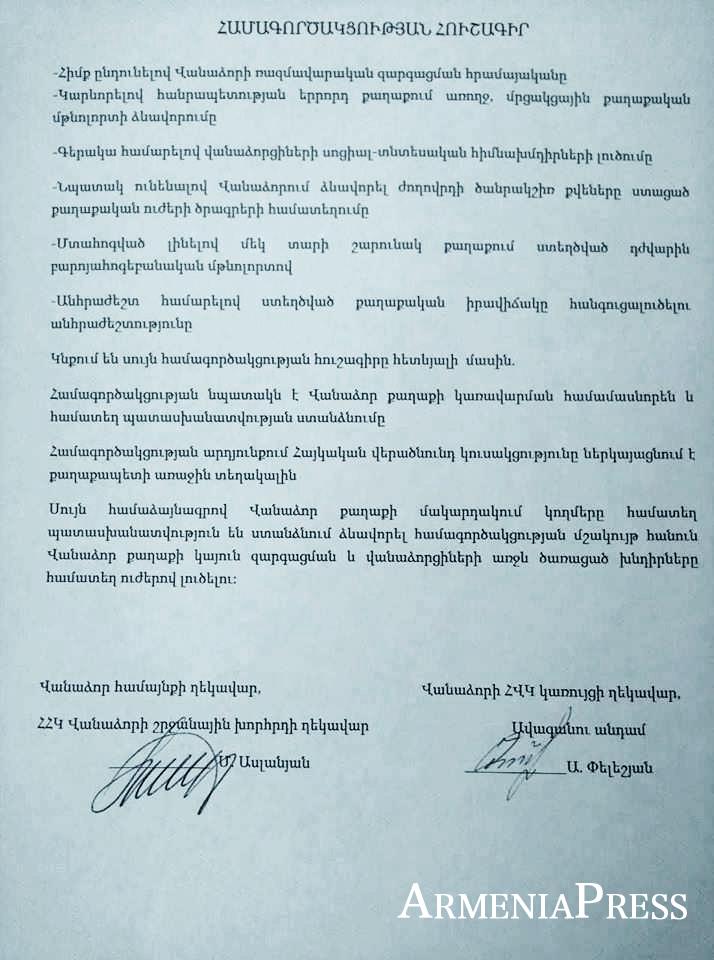 ՀԱՄԱԳՈՐԾԱԿՑՈՒԹՅԱՆ ՀՈՒՇԱԳԻՐ
-Հիմք ընդունելով Վանաձորի ռազմավարական զարգացման հրամայականը
-Կարևորելով հանրապետության երրորդ քաղաքում առողջ, մրցակցային քաղաքական
մթնոլորտի ձևավորումը
-Գերակա համարելով վանաձորցիների սոցիալ-տնտեսական հիմնախմդիրների լուծումը
-Նպատակ ունենալով Վանաձորում ձևավորել ժողովրդի ծանրակշիռ քվեները ստացած
քաղաքական ուժերի ծրագրերի համատեղումը
-Մտահոգված լինելով մեկ տարի շարունակ քաղաքում ստեղծված դժվարին
բարոյահոգեբանական մթնոլորտով
-Անհրաժեշտ համարելով ստեղծված քաղաքական իրավիճակը հանգուցալուծելու
անհրաժեշտությունը
Կնքում են սույն համագործակցության հուշագիրը հետևյալի մասին.
Համագործակցության նպատակն է Վանաձոր քաղաքի կառավարման համամասնորեն և
համատեղ պատասխանատվության ստանձնումը
Համագործակցության արդյունքում Հայկական վերածնունդ կուսակցությունը ներկայացնում է
քաղաքապետի առաջին տեղակալին
Սույն համաձայնագրով Վանաձոր քաղաքի մակարդակում կողմերը համատեղ
պատասխանատվություն են ստանձնում ձևավորել համագործակցության մշակույթ հանուն
Վանաձոր քաղաքի կայուն զարգացման և վանաձորցիների առջև ծառացած խնդիրները
համատեղ ուժերով լուծելու:
Վանաձոր համայնքի ղեկավար,
Վանաձորի ՀՎԿ կառույցի ղեկավար,
ՀՀԿ Վանաձորի շրջանային խորհրդի ղեկավար
Ավագանու անդամ
Ասլանյան
Ա. Փելեշյան
ARMENIAPRESS